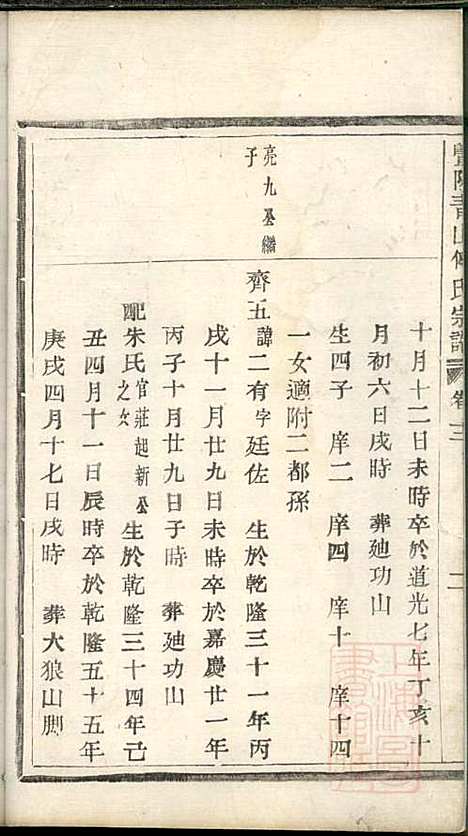 暨陽青山傅氏宗譜 卷三 二
十月十二日未時卒於道光七年丁亥十
月初六日戌時 葬廸功山
生四子 庠二 庠四 庠十 庠十四
一女適附二都孫
亮九公繼
子
齊五諱二有字廷佐 生於乾隆三十一年丙
戌十一月廿九日未時卒於嘉慶廿一年
丙子十月廿九日子時 葬廸功山
配朱氏官莊起新公之女 生於乾隆三十四年己
丑四月十一日辰時卒於乾隆五十五年
庚戌四月十七日戌時 葬大狼山脚
上海圖書館藏